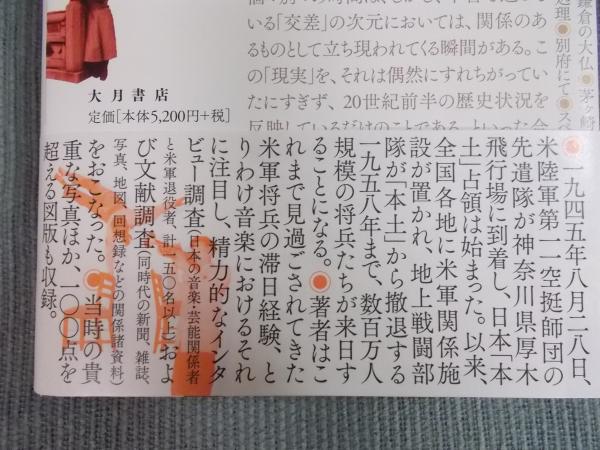 鎌倉の大仏◉茅ヶ崎
処理◉別府にて◉スペ
いる「交差」の次元においては、関係のあ
るものとして立ち現われてくる瞬間がある。こ
の「現実」を、それは偶然にすれちがってい
たにすぎず、20世紀前半の歴史状況を
反映しているだけのことである、といった
大月書店
定価[本体5,200円+税]
◉一九四五年八月二八日、
米陸軍第一一空挺師団の
先遣隊が神奈川県厚木
飛行場に到着し、日本「本
土」占領は始まった。以来、
全国各地に米軍関係施
設が置かれ、地上戦闘部
隊が「本土」から撤退する
一九五八年まで、数百万人
規模の将兵たちが来日す
ることになる。◉著者はこ
れまで見過ごされてきた
米軍将兵の滞日経験、と
りわけ音楽におけるそれ
に注目し、精力的なインタ
ビュー調査(日本の音楽・芸能関係者
と米軍退役者、計一五〇名以上)およ
び文献調査(同時代の新聞、雑誌、
写真、地図、回想録などの関係諸資料)
をおこなった。◉当時の貴
重な写真ほか、一〇〇点を
超える図版も収録。